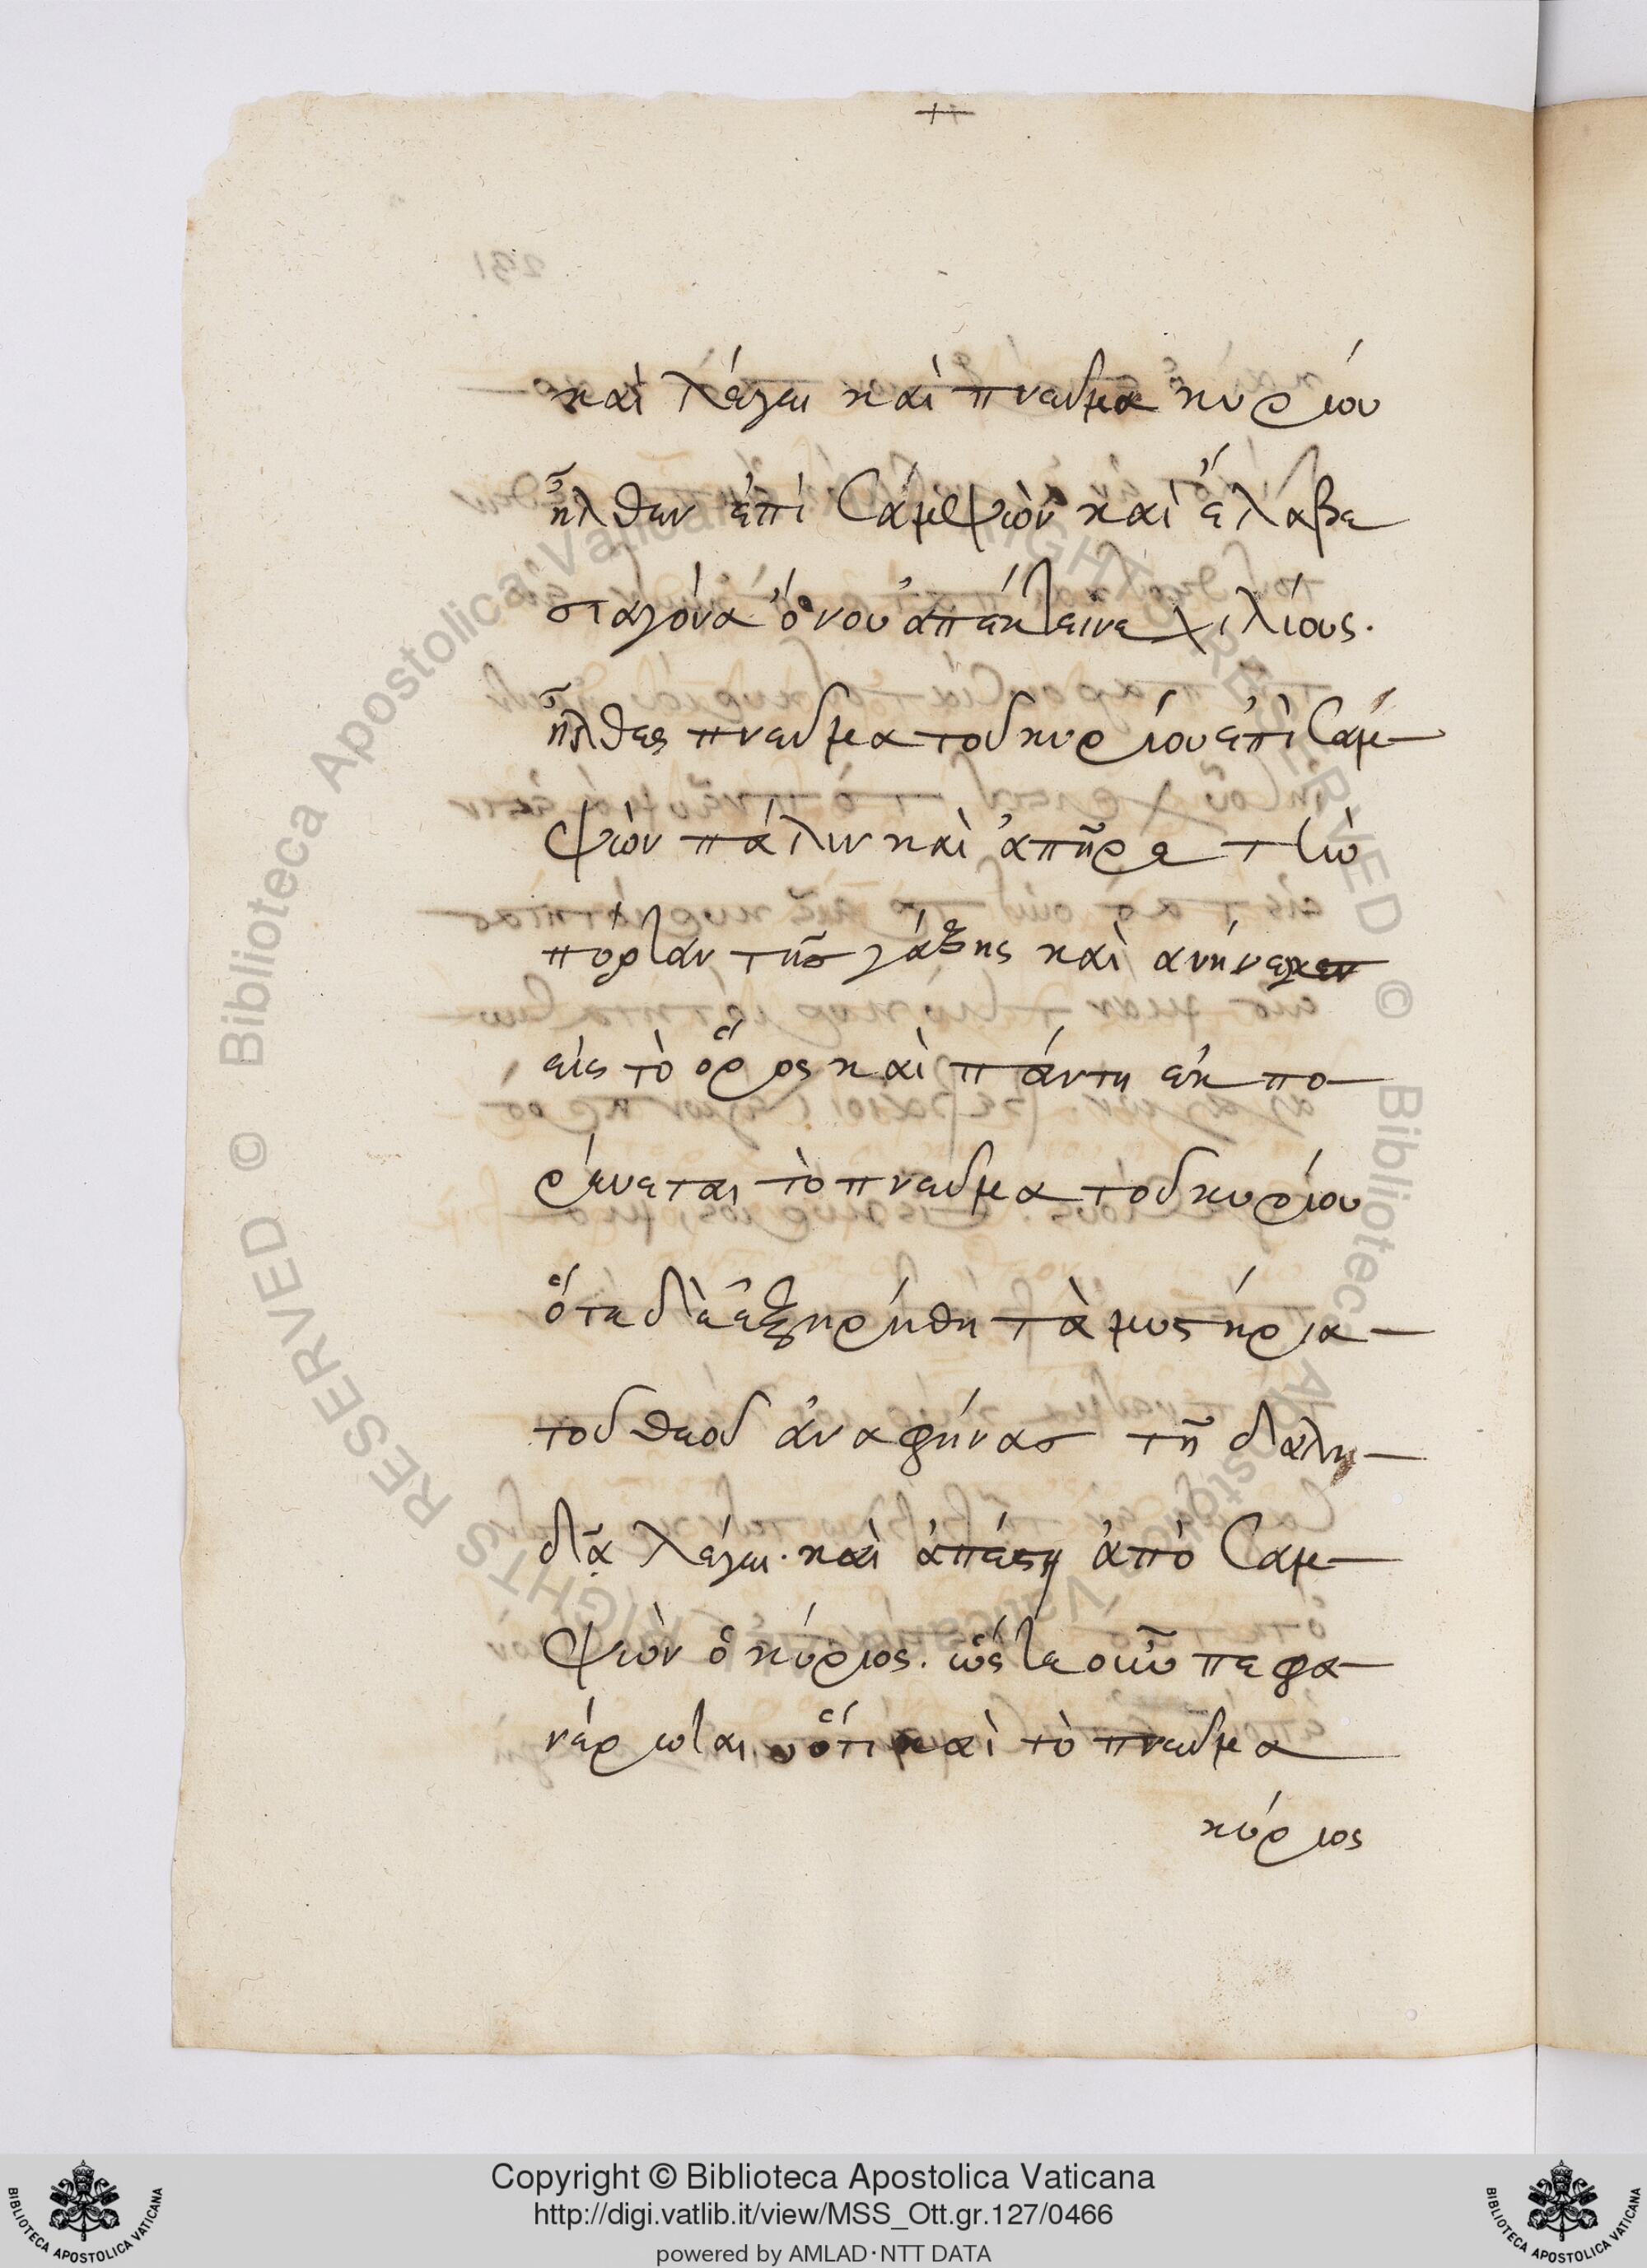 καὶ λέγει καὶ πνεῦμα κυρίου
ἦλθεν ἐπὶ Σαμψὼν καὶ ἔλαβε
σταγόνα ὄνου ἀπέκτεινε χιλίους.
ἦλθες πνεῦμα τοῦ κυρίου ἐπὶ Σαμ
ψὼν πάλιν καὶ ἀπῆρε τὴν
πόρταν τῆς γάζης καὶ ανήνεγκεν
εἰς τὸ ὄρος καὶ πάντη ἐκπο
ρεύεται τὸ πνεῦμα τοῦ κυρίου
ὅτε δὲ ἐξηρέθη τὰ μυστήρια
τοῦ θεοῦ ἀναφήνας τῇ δαλη
δᾶ λέγει. καὶ ἀπέστη ἀπὸ Σαμ
ψὼν ὁ κύριος. ὥστε οὖν πεφα
νέρωται ὅτι καὶ τὸ πνεῦμα
κύριος
Copyright © Biblioteca Apostolica Vaticana
http://digi.vatlib.it/view/MSS_Ott.gr.127/0466
powered by AMLAD·NTT DATA
BIBLIOTECA APOSTOLICA VATICANA
BIBLIOTECA APOSTOLICA VATICANA